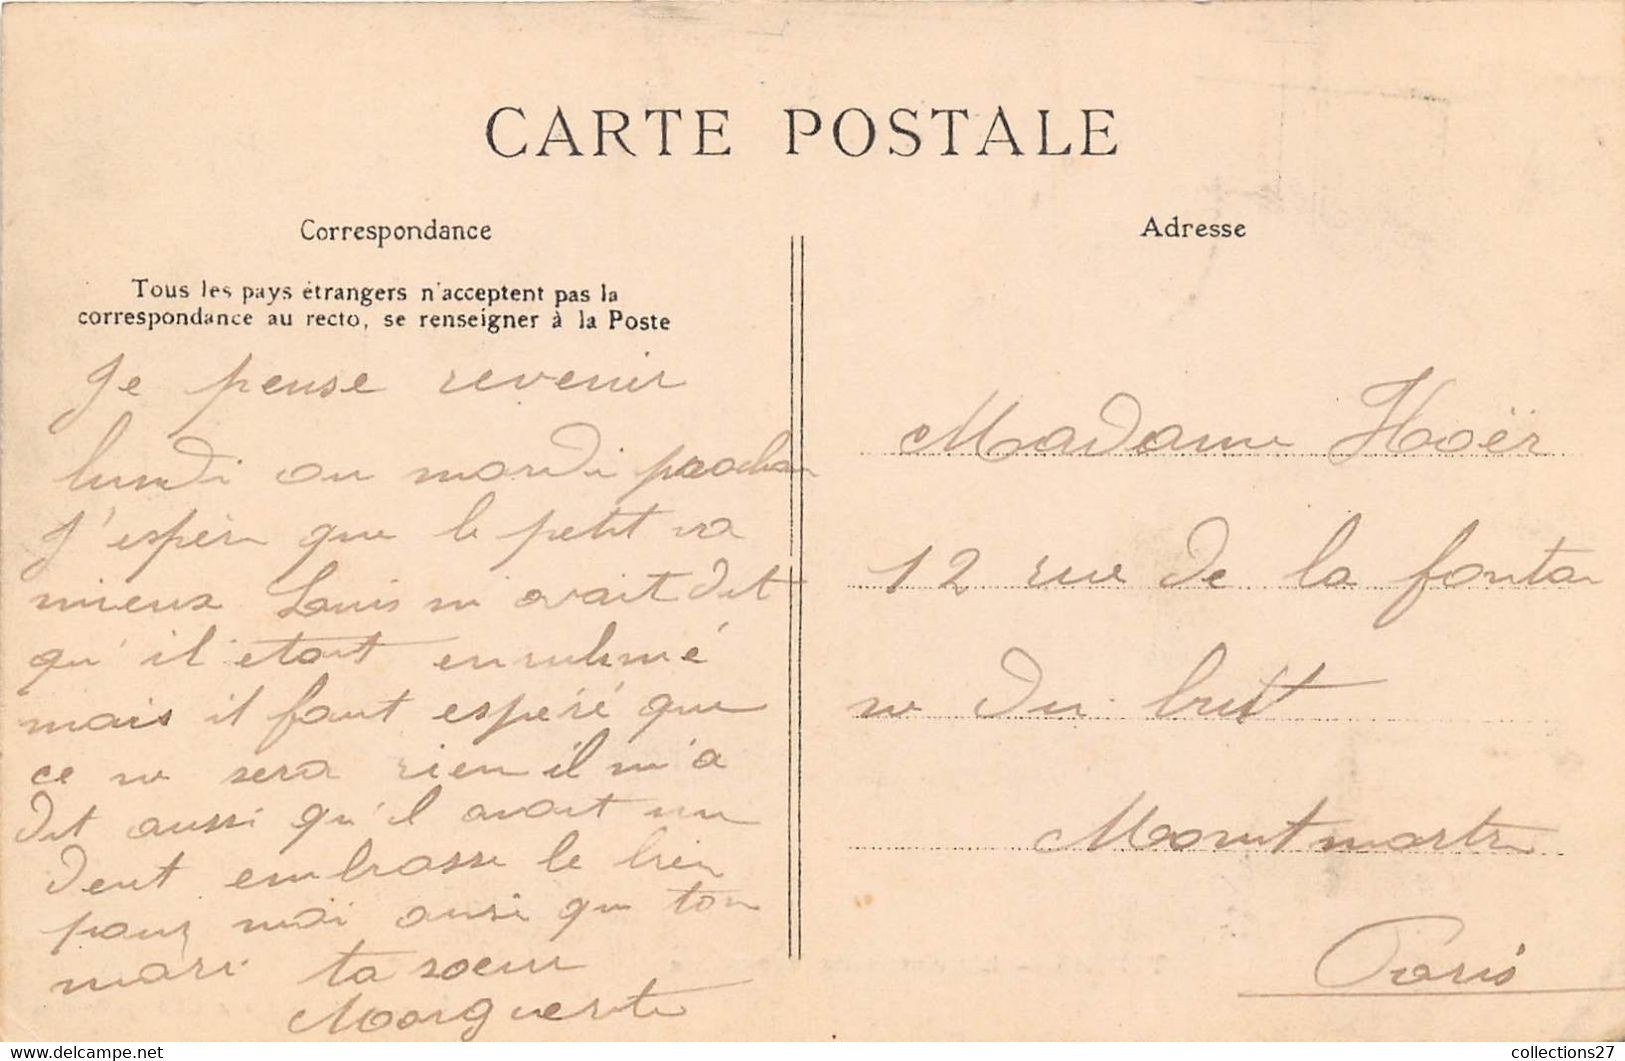 CARTE POSTALE
Correspondance
Tous les pays étrangers n'acceptent pas la
correspondance au recto, se renseigner à la Poste
Je pense revenir
lundi ou mardi prochain
J'espère que le petit va
mieux Louis m'avait dit
qu'il etait enruhmé
mais il faut espéré que
ce ne sera rien il m'a
dit aussi qu'il avait une
dent embrasse le bien
pour moi ausi que ton
mari ta soeur
Marguerite
Adresse
Madame Hoër
12 rue de la fontai
ne du but
Montmartre
Paris
collections27